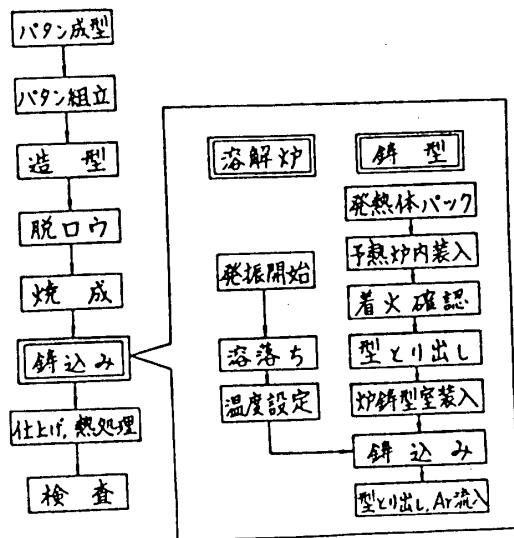 パタン成型
パタン組立
造型
脱ロウ
焼成
鋳込み
仕上げ,熱処理
検査
溶解炉
発振開始
溶落ち
温度設定
鋳型
発熱体パック
予熱炉内装入
着火確認
型とり出し
炉鋳型室装入
鋳込み
型とり出し,Ar流入